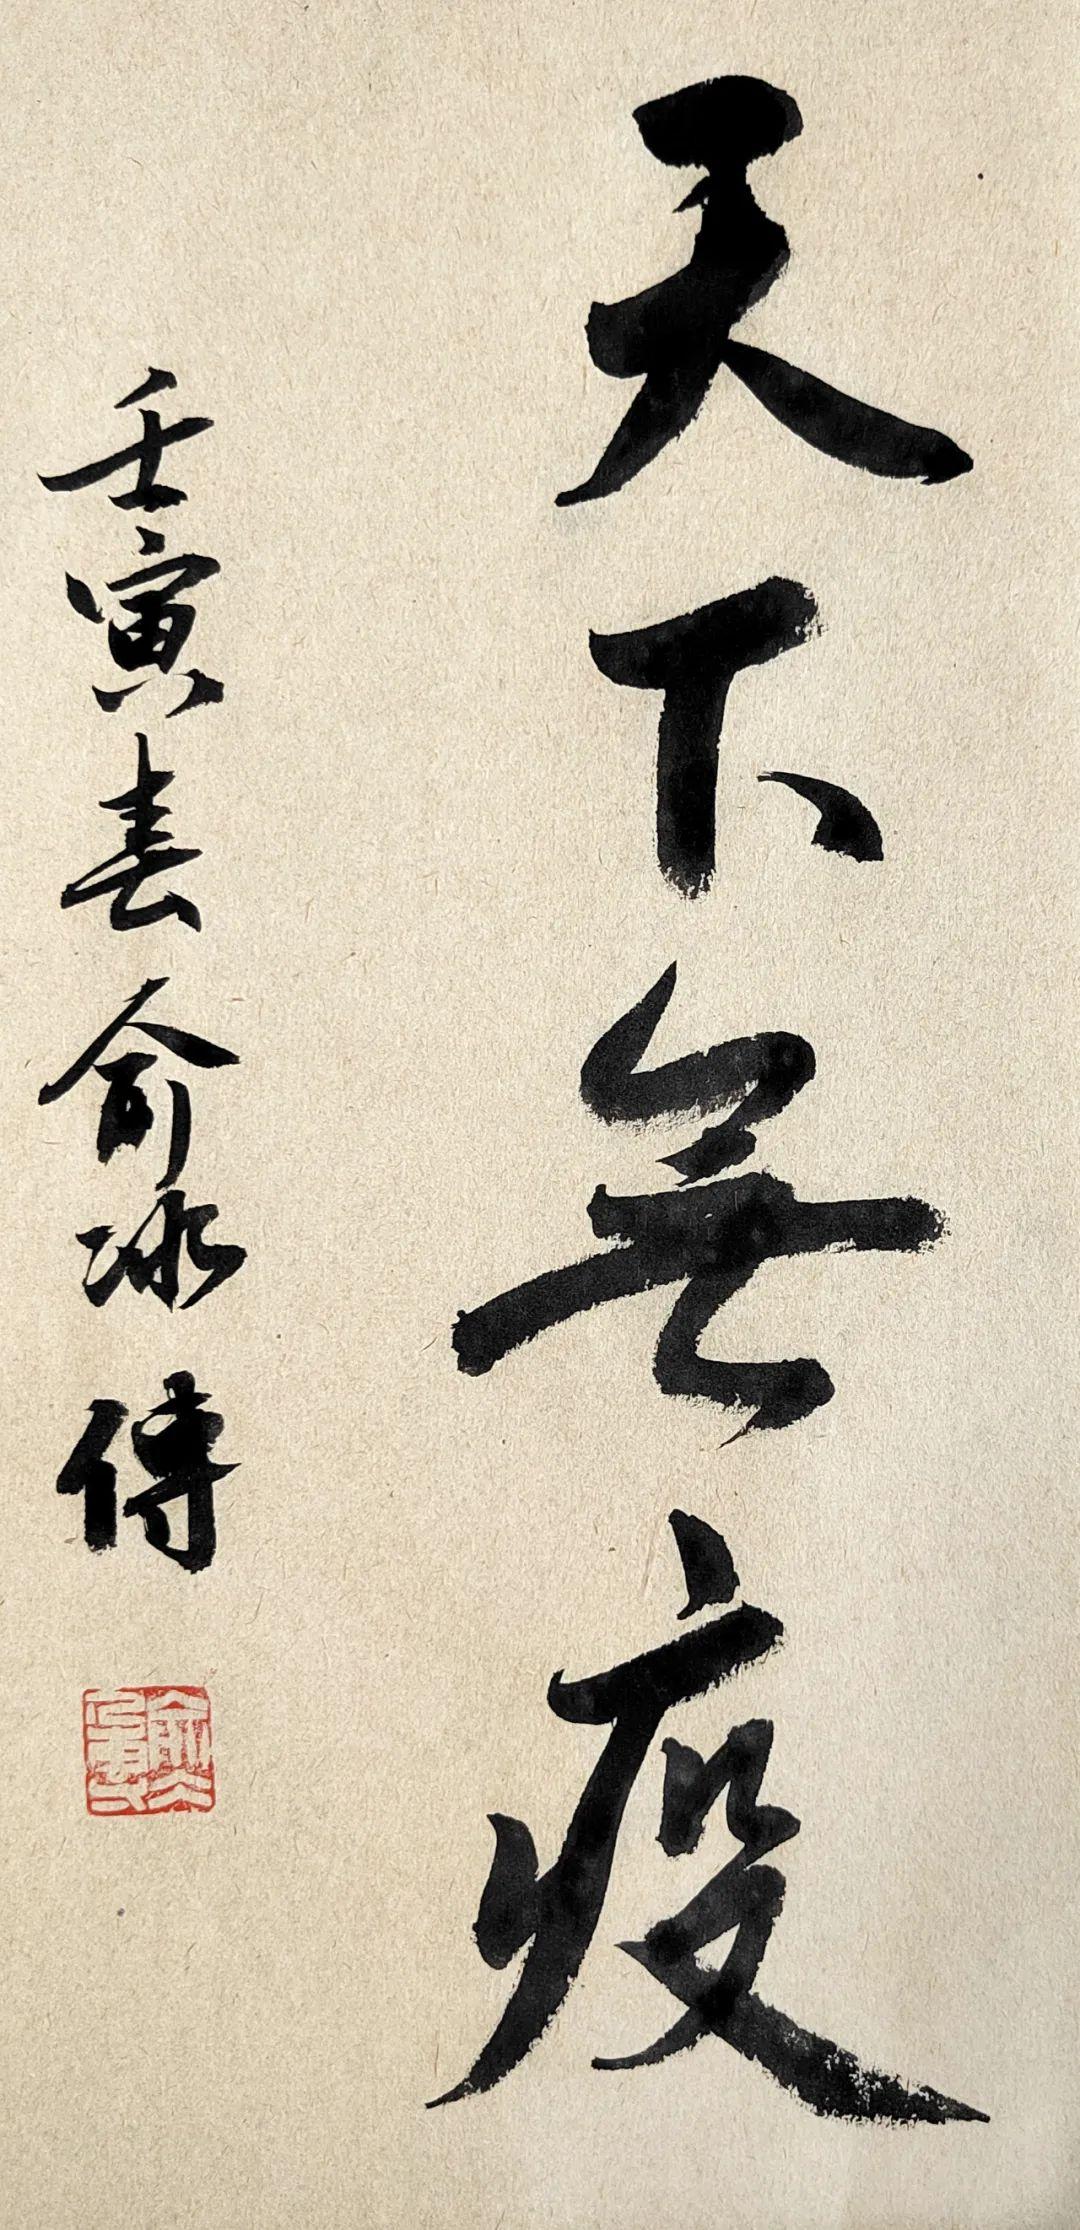 天下無疫
壬寅春俞冰傳